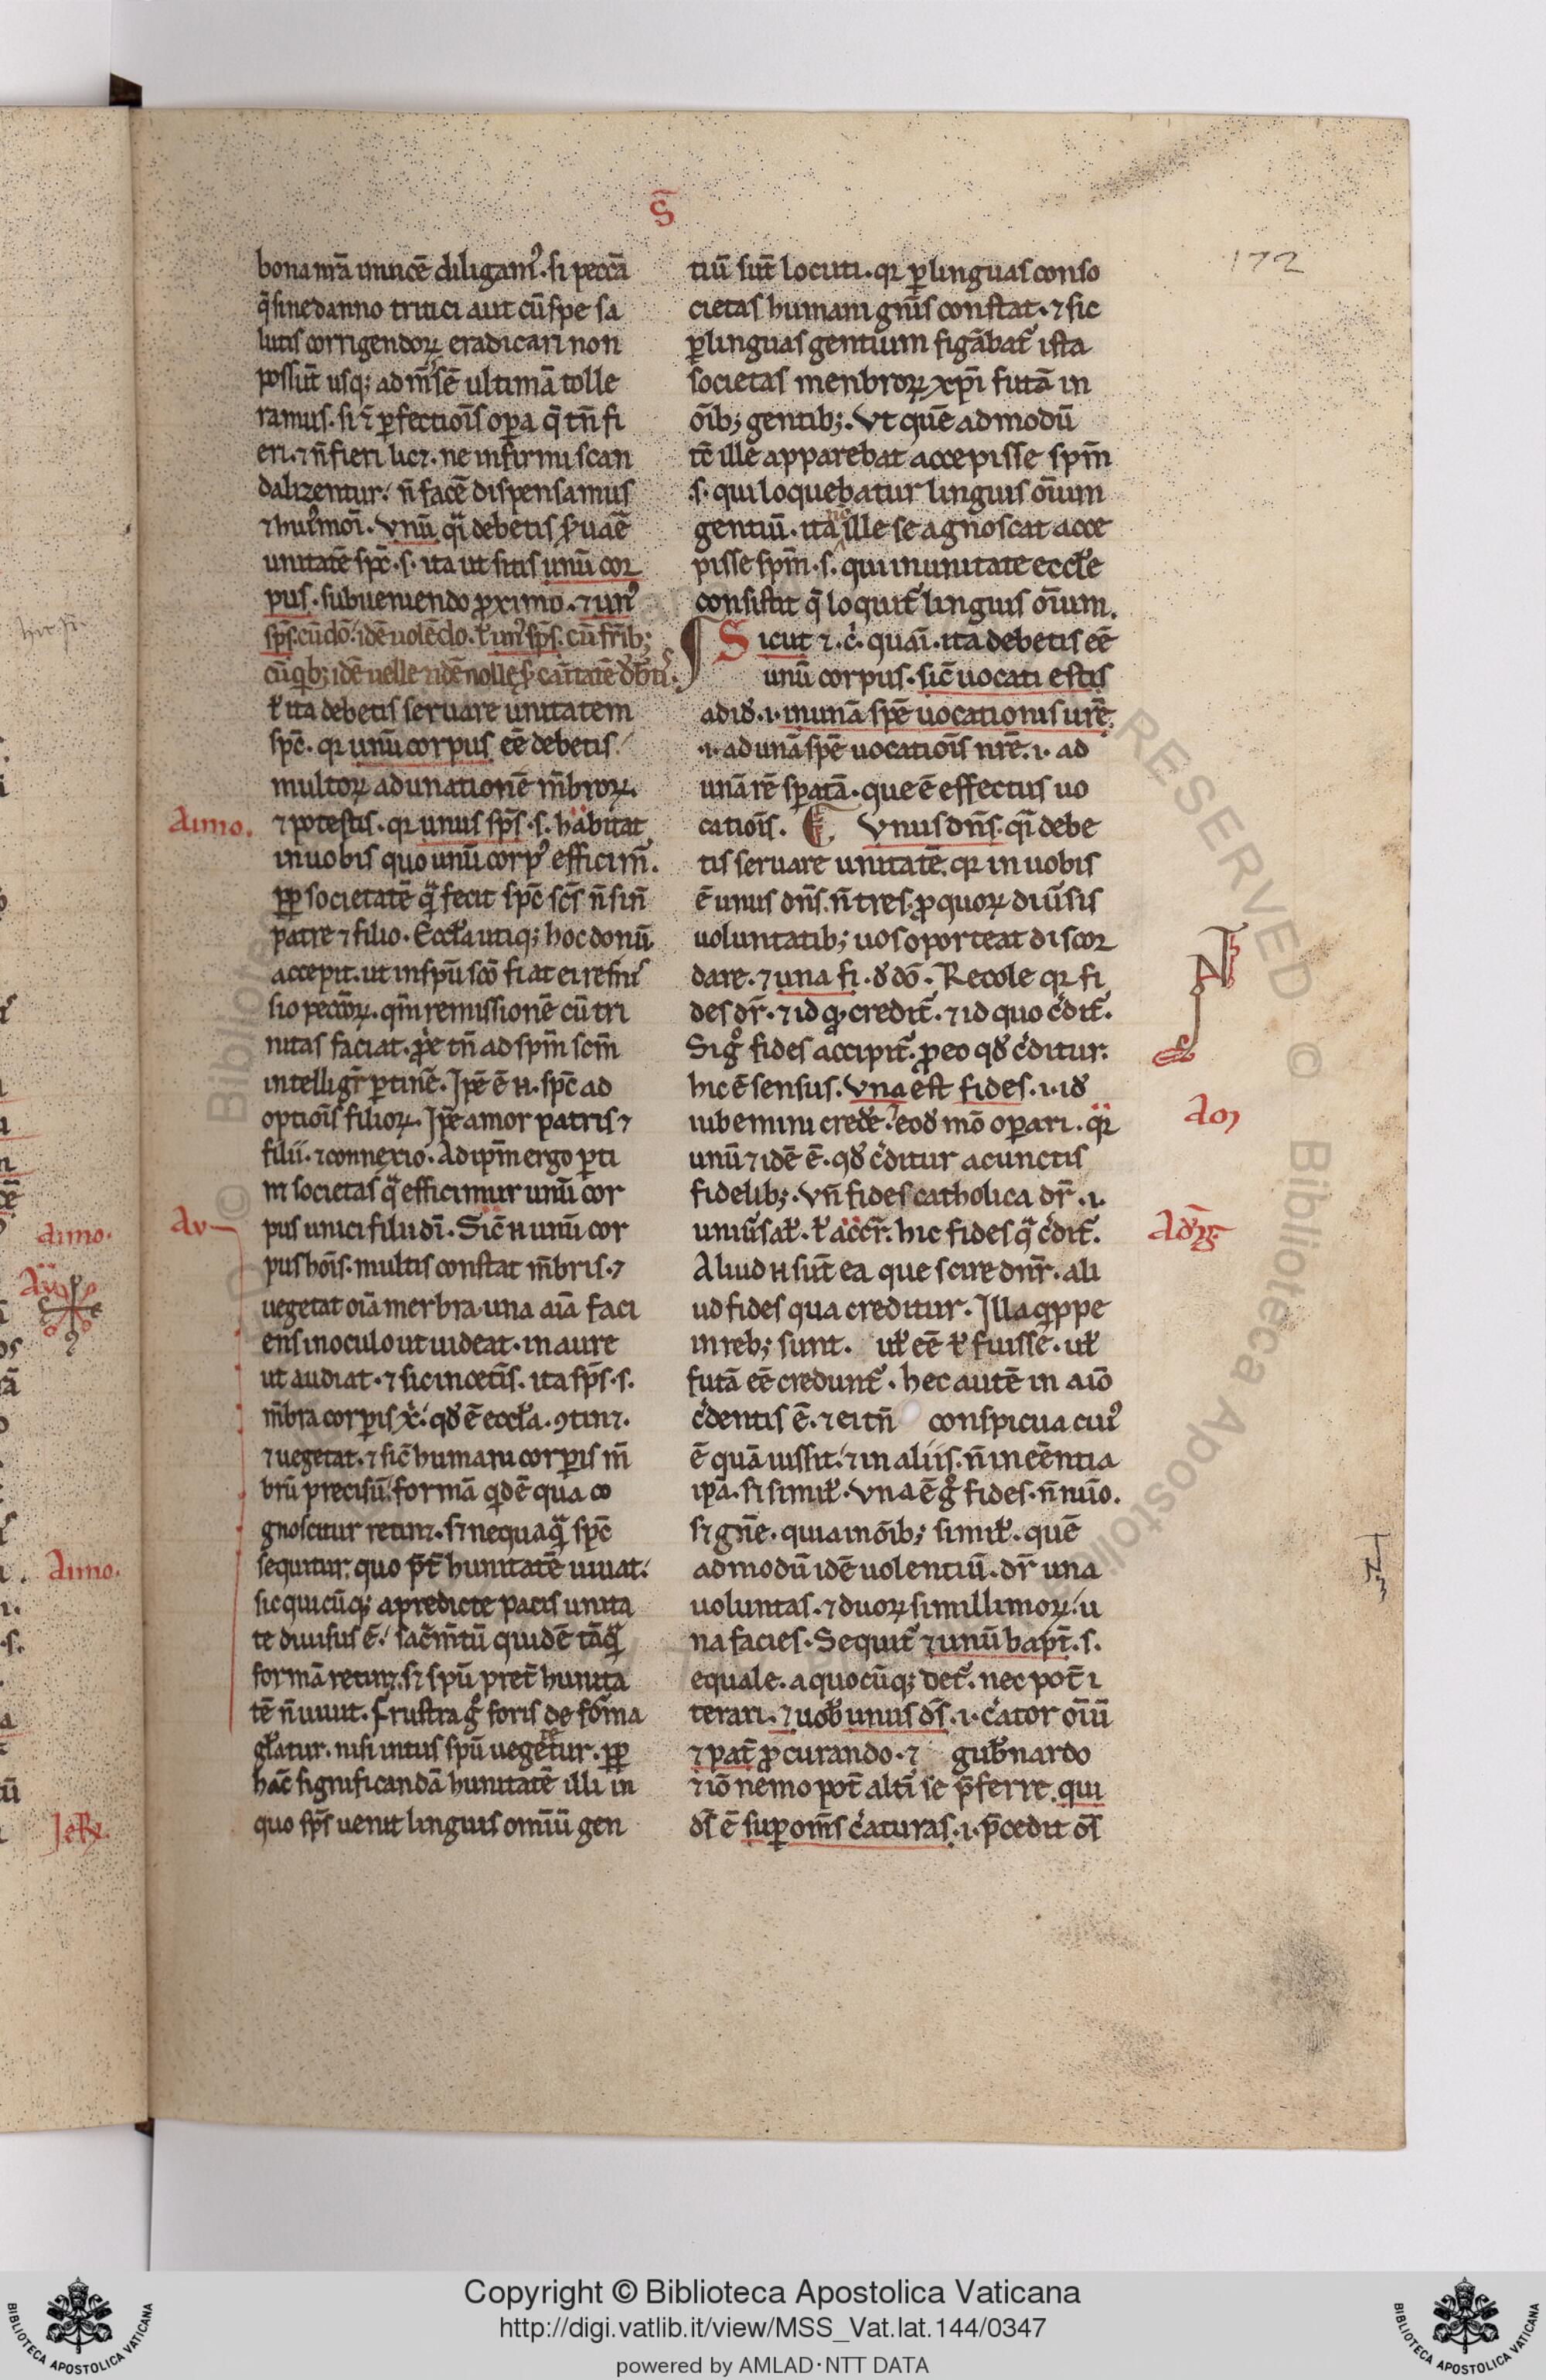 S̄
172
bona nr̄a inuicē diligam᷒. si peccā
q̄ sine danno tritici aut cū spe sa
lutis corrigendoꝝ eradicari non
possūt usq; ad m̄sē ultimā tolle
ramus. si ⁊ ꝑfectiōis oꝑa q̄ tn̄ fi
eri. ⁊ n̄ fieri licꝫ. ne infirmi scan
dalizentur. n̄ facē dispensamus
⁊ hui᷒moi. Vnū qͣi debetis ẜuaē
unitatē spc̄. s. ita ut sitis unū cor
pus. subueniendo ꝓximo. ⁊ un᷒
sps̄. cū dō. idē uolēdo. ł un᷒ sps̄. cū fr̄ib;
cū qͥb; idē uelle ⁊ idē nolle
ł ita debetis seruare unitatem
spc̄. qꝛ unū corpus eē debetis.
multoꝝ adunationē m̄broꝝ.
Aimo.
⁊ potestis. qꝛ unus sps̄. s. habitat
in uobis quo unū corp᷒ efficim᷒.
ꝓp societatē qͣ fecit spc̄ sc̄s n̄ sin̄
patre ⁊ filio. Eccła utiq; hoc donū
accepit. ut in spū sc̄o fiat ei remis
sio peccōꝝ. qm̄ remissionē cū tri
nitas faciat. ꝓe tn̄ ad spm̄ scm̄
intelligr̄ ꝑtinē. Ip̄e ē n̄. spc̄ ad
optiōis filioꝝ. Ip̄e amor patris ⁊
filii. ⁊ connexio. Ad ipm̄ ergo ꝑti
nꝫ societas qͣ efficimur unū cor
Av
pus unici filii dī. Sic̄ n̄ unū cor
pus hōis. multis constat m̄bris. ⁊
uegetat oīa menbra una aīa faci
ens in oculo ut uideat. in aure
ut audiat. ⁊ sic in cet̄is. ita sps̄. s.
m̄bra corꝑis xͥ. qđ ē eccła. ꝯtinꝫ.
⁊ uegetat. ⁊ sic̄ humani corꝑis m̄
brū precisū. formā qͥdē qua co
gnoscitur retinꝫ. sꝫ nequaqͣ spc̄
sequitur. quo p̄t̄ h unitatē uiuat.
sic quicūq; a predicte pacis unita
te diuisus ē. sacm̄tū quidē tāqͣ
formā retinꝫ. sꝫ spū pret̄ h unita
tē n̄ uiuit. Frustra gͦ foris de forma
gl̄atur. nisi intus spū uegetetur. ꝓp
hac̄ significandā h unitatē illi in
quo sps̄ uenit linguis omīū gen
tiū sūt locuti. qꝛ ꝑ linguas conso
cietas humani gn̄is constat. ⁊ sic
ꝑ linguas gentium figābat᷒ ista
societas menbroꝝ xpi futā in
ōib; gentib;. Vt quē ad modū
tc̄ ille apparebat accepisse spm̄
s. qui loquebatur linguis oīum
gentiū. ita nc̄ ille se agnoscat acce
pisse spm̄. s. qui in unitate eccłe
consistit q̄ loquit᷒ linguis oīum.
¶ Sicut ⁊. c̄. quaī. ita debetis eē
unū corpus. sic̄ uocati estis
ad iđ. i. in unā spē uocationis urē.
.i. ad unā spē uocatiōis nrē. i. ad
unā rē sꝑatā. que ē effectus uo
catiōis. ¶ Vnus dn̄s. qͣi debe
tis seruare unitatē. qꝛ in uobis
ē unus dn̄s. n̄ tres. ꝓ quoꝝ diūsis
uoluntatib; uos oporteat discor
dare. ⁊ una fi. đ dō. Recole qꝛ fi
des dr̄. ⁊ id qͦ credit᷒. ⁊ id quo c̄dit᷒.
Sig gͦ fides accipit᷒. ꝓ eo qđ c̄ditur.
hic ē sensus. Vna est fides. i. iđ
iubemini credē. eođ mō oꝑari. qꝛ
Aꝯ
unū ⁊ idē ē. qđ c̄ditur a cunctis
fidelib;. Vn̄ fides catholica dr̄. i.
uniūsał. ł accr̄. hic fides qͣ c̄dit᷒.
Aliud n̄ sūt ea que scire dnr̄. ali
ud fides qua creditur. Illa qͥppe
in reb; sunt. uł eē ł fuisse. uł
futā eē credunt᷒. hec autē in aiō
c̄dentis ē. ⁊ ei tn̄ conspicua cui᷒
ē quā iussit. ⁊ in aliis. n̄ in eēntia
ip̄a. sꝫ simił. Vna ē gͦ fides. n̄ nūo.
sꝫ gn̄e. quia in ōib; simił. quē
admodū idē uolentiū. dr̄ una
uoluntas. ⁊ duoꝝ simillimoꝝ. u
na facies. Sequit᷒ ⁊ unū bapt̄. s.
equale. a quocūq; det᷒. nec pot̄ i
terari. ⁊ uob̄ unus ds̄. i. c̄ator oīū
⁊ pat̄ ꝓcurando. ⁊ gub̄nando
⁊ iō nemo pot̄ alti se p̄ferre. qui
ds̄ ē suꝑ oms̄ c̄aturas. i. p̄cedit os̄
Copyright © Biblioteca Apostolica Vaticana
http://digi.vatlib.it/view/MSS_Vat.lat.144/0347
powered by AMLAD·NTT DATA